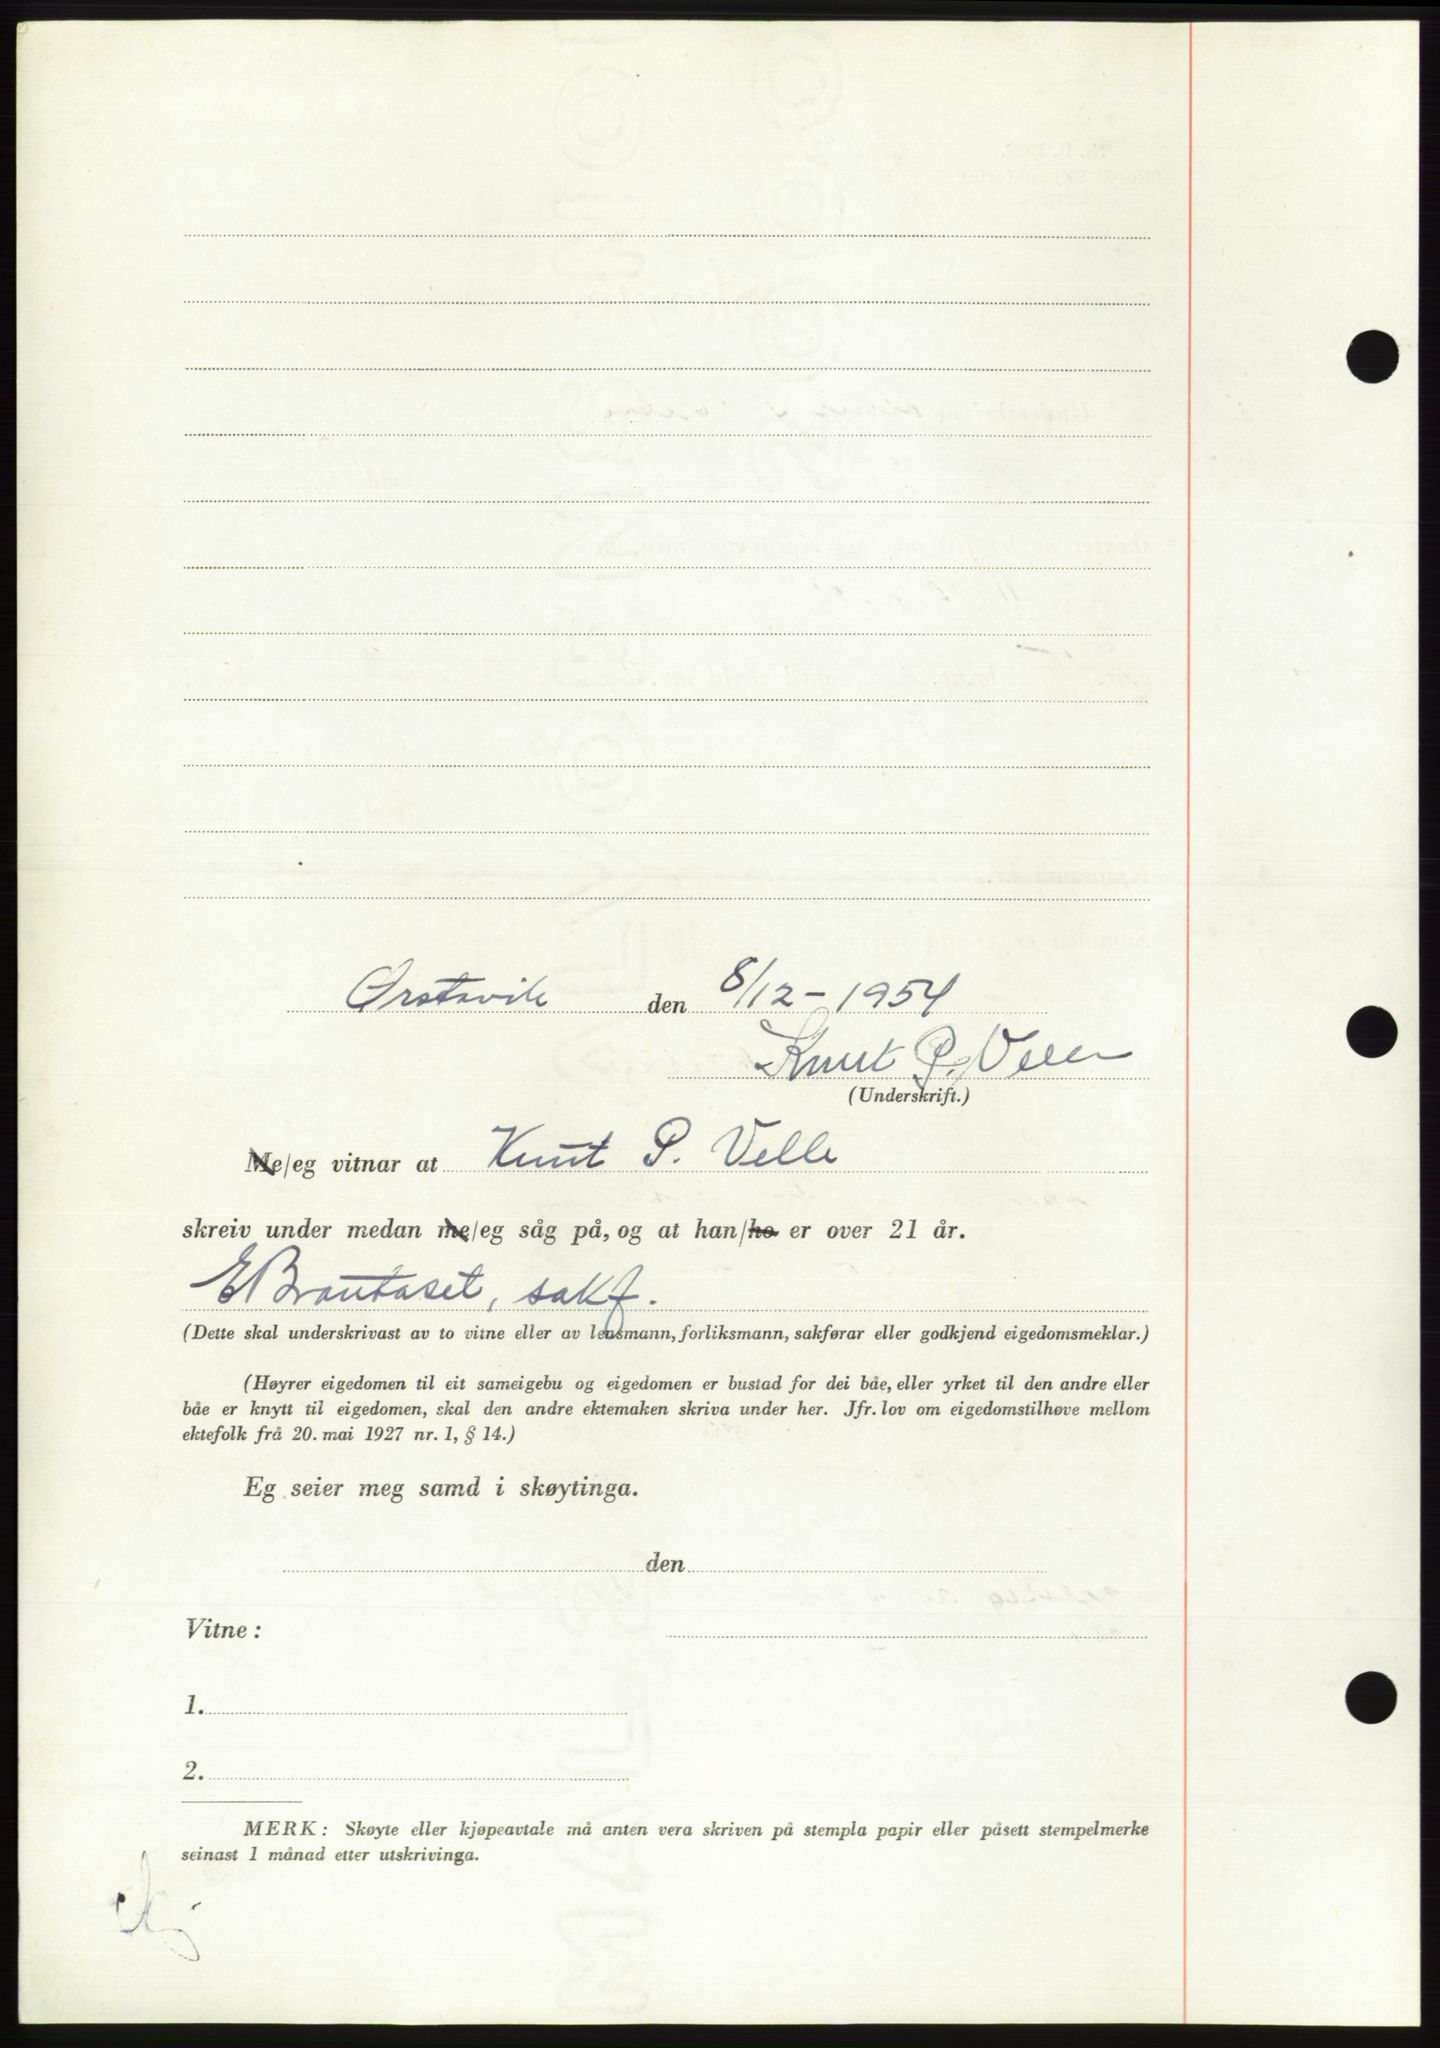 Ørstavik den 8/12 - 1954
Knut P. Velle
(Underskrift.)
Me/eg vitnar at Knut P. Velle
skreiv under medan me/eg såg på, og at han/ho er over 21 år.
E Brautaset, sakf.
(Dette skal underskrivast av to vitne eller av lensmann, forliksmann, sakførar eller godkjend eigedomsmeklar.)
(Høyrer eigedomen til eit sameigebu og eigedomen er bustad for dei båe, eller yrket til den andre eller
båe er knytt til eigedomen, skal den andre ektemaken skriva under her. Jfr. lov om eigedomstilhøve mellom
ektefolk frå 20. mai 1927 nr. 1, § 14.)
Eg seier meg samd i skøytinga.
den
Vitne:
1.
2.
MERK: Skøyte eller kjøpeavtale må anten vera skriven på stempla papir eller påsett stempelmerke
seinast 1 månad etter utskrivinga.